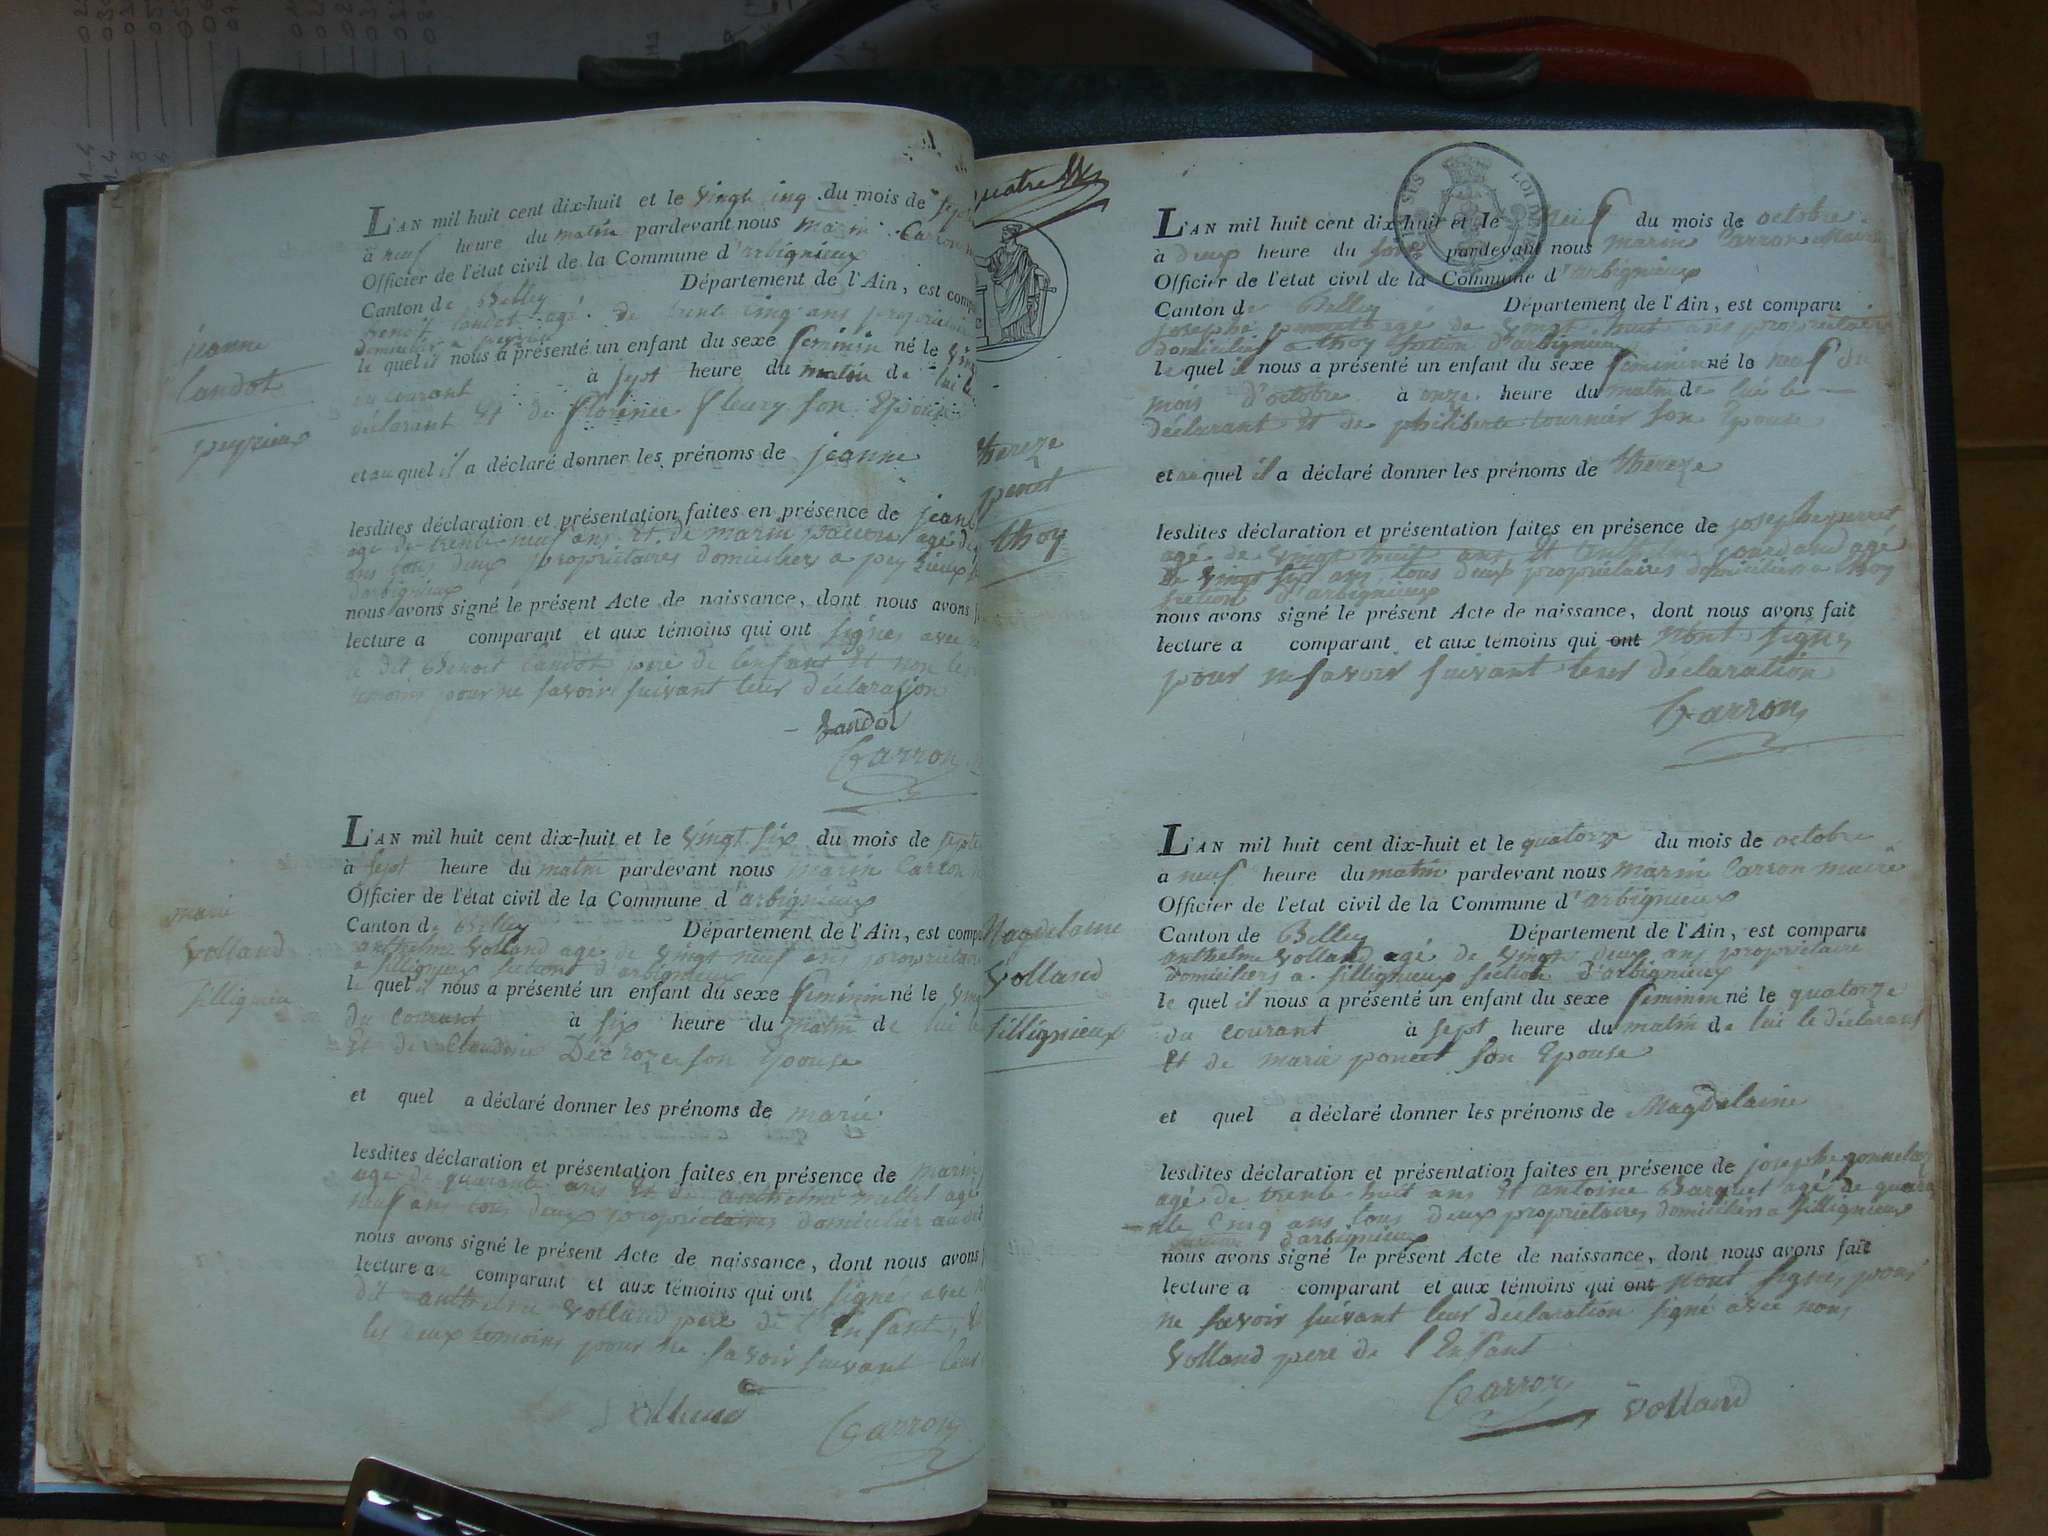 jeanne
Candot
peyzieux
L'AN mil huit cent dix-huit et le vingt cinq du mois de
à neuf heure du matin pardevant nous marin Carron
Officier de l'état civil de la Commune d'arbignieux
Canton de Belley Département de l'Ain, est
benoit Candot agé de trente cinq ans propriétaire
domicilier a
le quel il nous a présenté un enfant du sexe feminin né le
du courant à sept heure du matin de lui le
déclarant Et de florence fleury son Epouse
et au quel il a déclaré donner les prénoms de jeanne
lesdites déclaration et présentation faites en présence de jean
agé de trente neuf ans Et de marin agé de
ans tous deux propriétaires domiciliers a peyzieux
d'arbignieux
nous avons signé le présent Acte de naissance, dont nous avons
lecture a comparant et aux témoins qui ont signés avec
le dit Benoit Candot pere de lenfant Et non les
temoins pour ne savoir suivant leur déclaration
Candot
Carron
marie
Volland
Sillignieu
L'AN mil huit cent dix-huit et le vingt six du mois de
à sept heure du matin pardevant nous marin Carron
Officier de l'état civil de la Commune d'arbignieux
Canton de Belley Département de l'Ain, est
anthelme Volland agé de vingt neuf ans propriétaire
a Sillignieux section d'arbignieux
le quel il nous a présenté un enfant du sexe feminin né le
du courant à six heure du matin de lui le
Et de Claudine Décroze son Epouse
et quel a déclaré donner les prénoms de marie
lesdites déclaration et présentation faites en présence de marin
agé de quarante ans Et de anthelme mellet agé
neuf ans tous deux propriétaires domicilier audit
nous avons signé le présent Acte de naissance, dont nous avons
lecture au comparant et aux témoins qui ont signé avec
dit anthelme Volland pere de l'Enfant,
les deux temoins pour ne savoir suivant leur
Volland
Carron
quatre
thereze
penet
thoy
L'AN mil huit cent dix-huit et le neuf du mois de octobre
à deux heure du soir pardevant nous marin Carron maire
Officier de l'état civil de la Commune d'arbignieux
Canton de Belley Département de l'Ain, est comparu
josephe agé de vingt huit ans propriétaire
domicilier a thoy section d'arbignieux
le quel il nous a présenté un enfant du sexe feminin né le neuf du
mois d'octobre à onze heure du matin de lui le
déclarant Et de philiberte tournier son Epouse
et au quel il a déclaré donner les prénoms de thereze
lesdites déclaration et présentation faites en présence de josephe
agé de vingt huit ans Et anthelme gourdand agé
de vingt six ans tous deux propriétaires domiciliers a thoy
section d'arbignieux
nous avons signé le présent Acte de naissance, dont nous avons fait
lecture a comparant et aux témoins qui ont n'ont signés
pour ne savoir suivant leur declaration
Carron
Magdelaine
Volland
Sillignieux
L'AN mil huit cent dix-huit et le quatorze du mois de octobre
a neuf heure du matin pardevant nous marin Carron maire
Officier de l'état civil de la Commune d'arbignieux
Canton de Belley Département de l'Ain, est comparu
anthelme Volland agé de vingt deux ans propriétaire
domiciliers a Sillignieux section d'arbignieux
le quel il nous a présenté un enfant du sexe feminin né le quatorze
du courant à sept heure du matin de lui le déclarant
Et de marie poncet son Epouse
et quel a déclaré donner les prénoms de Magdelaine
lesdites déclaration et présentation faites en présence de josephe
agé de trente huit ans Et antoine Barquet agé de quara
nte cinq ans tous deux propriétaires domiciliers a Sillignieux
section d'arbignieux
nous avons signé le présent Acte de naissance, dont nous avons fait
lecture a comparant et aux témoins qui ont n'ont signés pour
ne savoir suivant leur declaration signé avec nous
Volland pere de l'Enfant
Carron
Volland